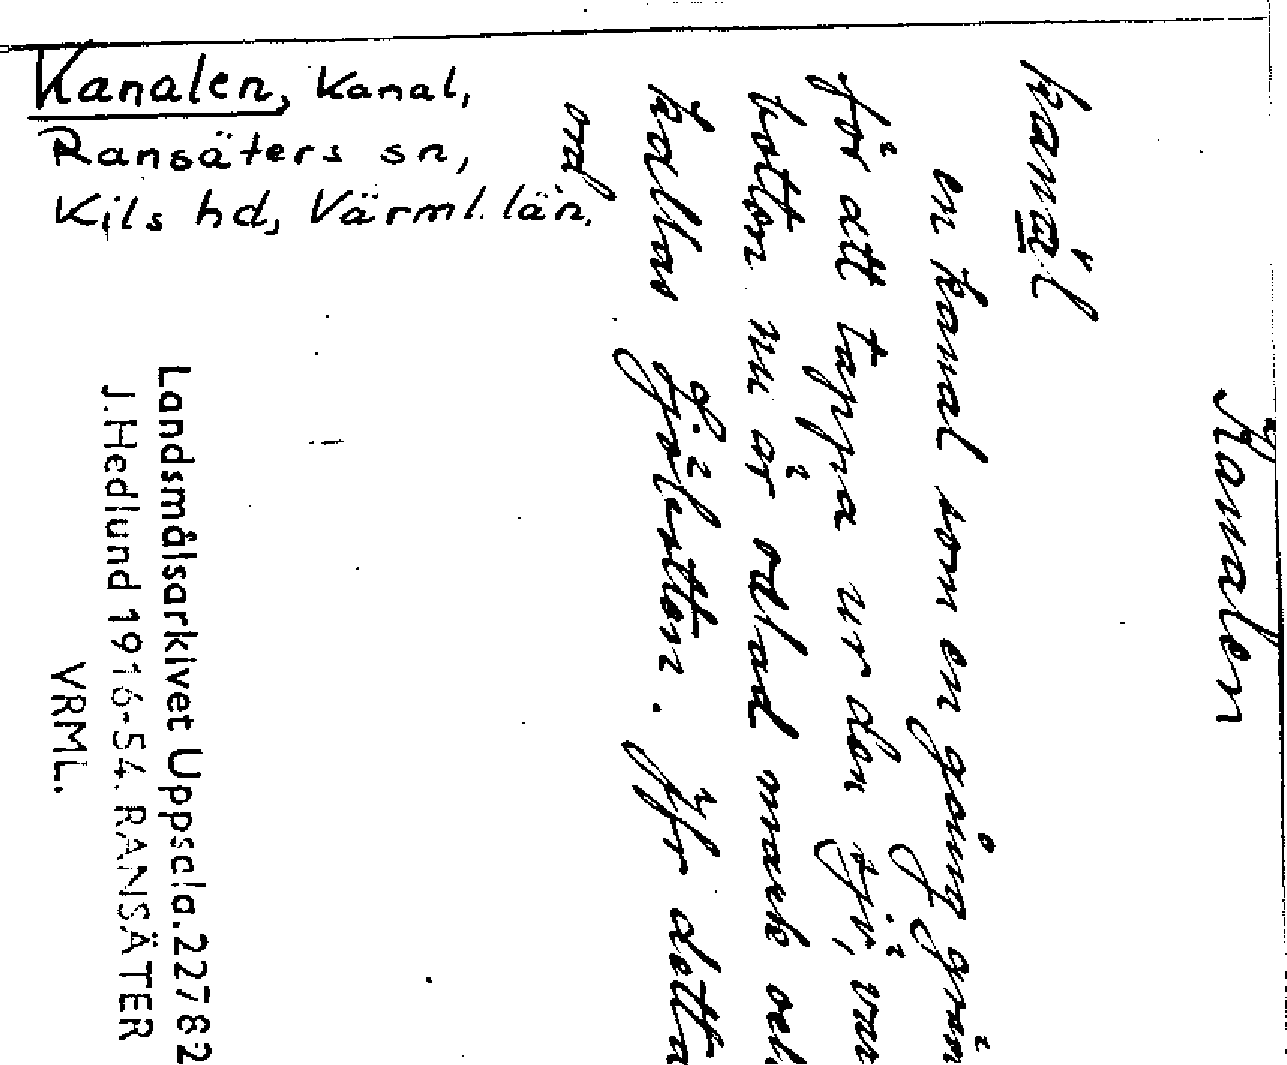 Kanalen, Kanal,
Ransäters sn,
Kils hd, Värml. län.
Kanalen
kanal
en kanal som en gång
för att tappa ur den
botten nu är odlad mark och
kallas . Jfr detta
ord
Landsmålsarkivet Uppsala. 22782
J. Hedlund 1916-54. RANSÄTER
VRML.